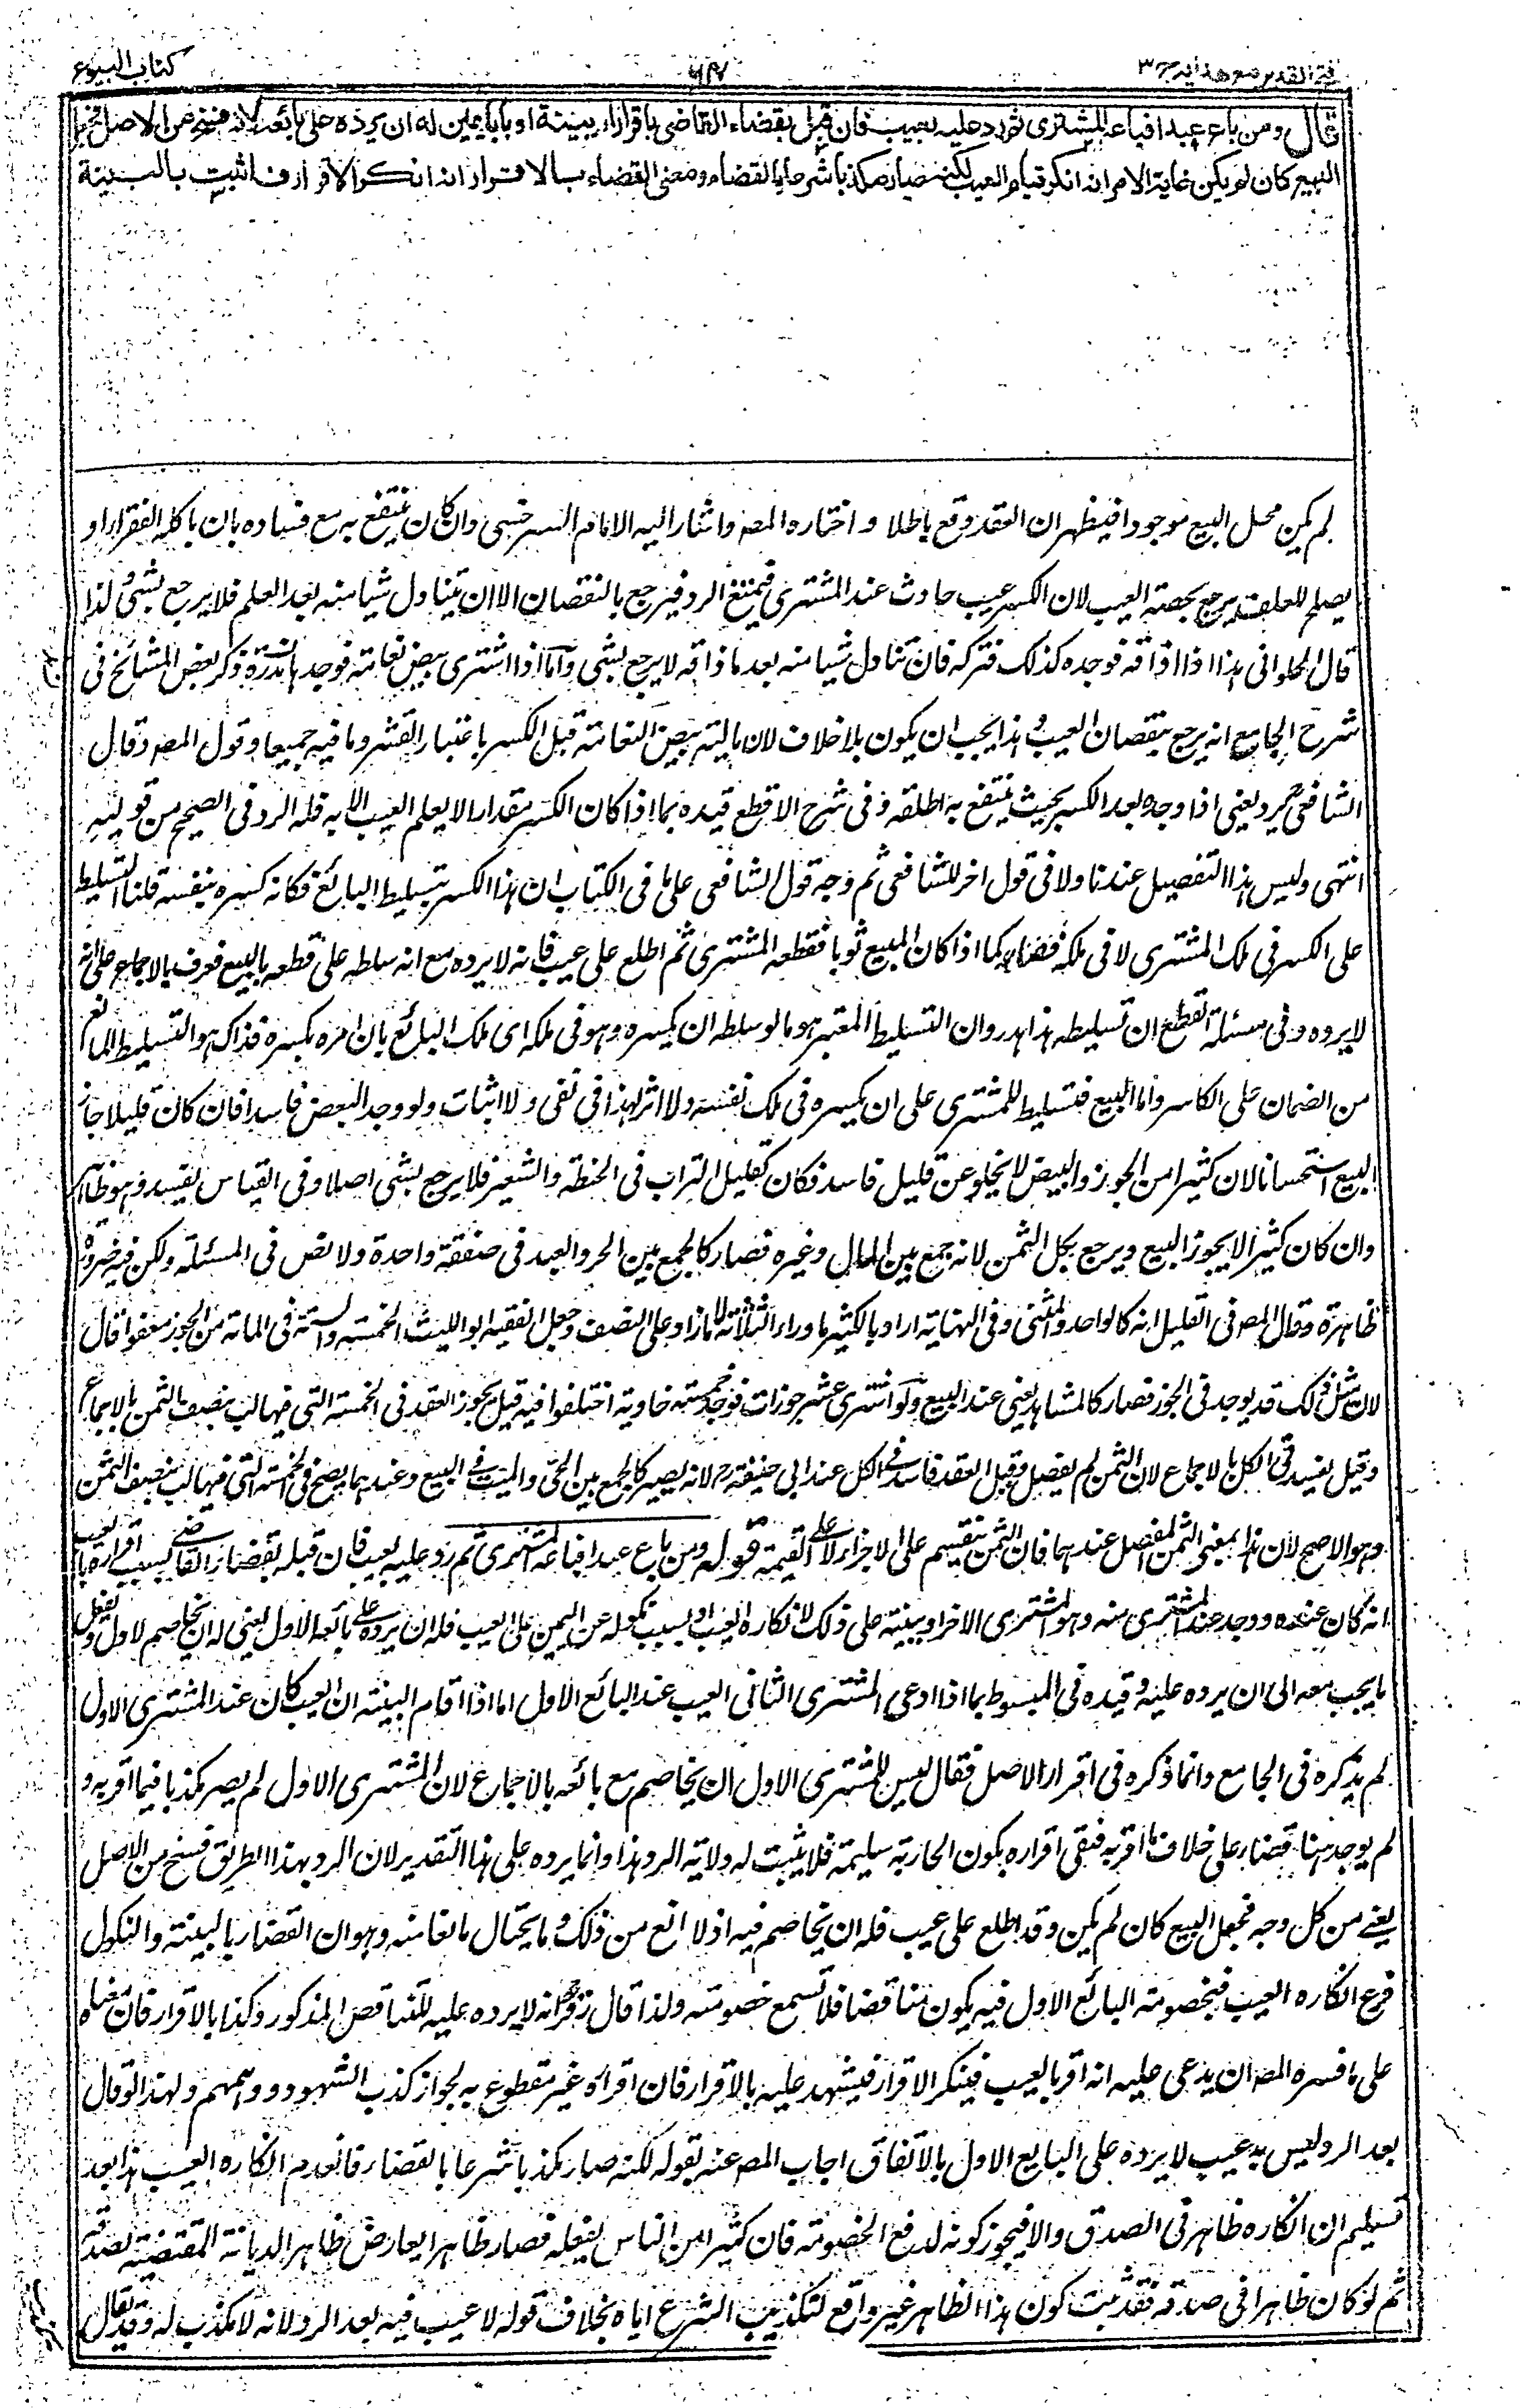 فتح القدير مع هدايه ج ٣
كتاب البيوع
قال ومن باع عبدا فباعه المشترى ثم رد عليه بعيب فان قبل بقضاء القاضى باقرار او ببينة او باباء يمين له ان يرده على بائعه لانه فسخ من الاصل فجعل
البيع كان لم يكن غاية الامر انه انكر قيام العيب لكنه صار مكذبا شرعا بالقضاء ومعنى القضاء بالاقرار انه انكر الاقرار فاثبت بالبينة
لم يكن محل البيع موجودا فيظهر ان العقد وقع باطلا واختاره المصـ واشار اليه الامام السرخسى وان كان ينتفع به مع فساده بان ياكله الفقراء او
يصلح للعلف يرجع بحصته العيب لان الكسر عيب حادث عند المشترى فيمتنع الرد فيرجع بالنقصان الا ان يتناول شيا منه بعد العلم فلا يرجع بشئ لذا
قال الحلوانى هذا اذا ذاقه فوجده كذلك فتركه فان تناول شيا منه بعد ما ذاقه لا يرجع بشئ واما اذا اشترى بيض نعامة فوجدها مذرة ذكر بعض المشائخ فى
شرح الجامع انه يرجع بنقصان العيب وهذا يجب ان يكون بلا خلاف لان مالية بيض النعامة قبل الكسر باعتبار القشر وما فيه جميعا وقول المصـ وقال
الشافعى يرد يعنى اذا وجده بعد الكسر بحيث ينتفع به اطلقه وفى شرح الاقطع قيده بما اذا كان الكسر مقدارا لا يعلم العيب الا به فله الرد فى الصحيح من قوليه
انتهى وليس هذا التفصيل عندنا ولا فى قول اخر للشافعى ثم وجه قول الشافعى على ما فى الكتاب ان هذا الكسر بتسليط البائع فكانه كسره بنفسه قلنا التسليط
على الكسر فى ملك المشترى لا فى ملكه فصار كما اذا كان المبيع ثوبا فقطعه المشترى ثم اطلع على عيب فانه لا يرده مع انه سلطه على قطعه بالبيع فعرف بالاجماع على انه
لا يرده وفى مسئلة القطع ان تسليطه هذا هدر وان التسليط المعتبر هو ما لو سلطه ان يكسره وهو فى ملكه اى ملك البائع بان امره بكسره فذاك هو التسليط المانع
من الضمان على الكاسر واما البيع فتسليط للمشترى على ان يكسره فى ملك نفسه ولا اثر لهذا فى نفى ولا اثبات ولو وجد البعض فاسدا فان كان قليلا جاز
البيع استحسانا لان كثيرا من الجوز والبيض لا يخلو عن قليل فاسد فكان كقليل التراب فى الحنطة والشعير فلا يرجع بشئ اصلا وفى القياس يفسد وهو ظاهر
وان كان كثيرا لا يجوز البيع ويرجع بكل الثمن لانه جمع بين المال وغيره فصار كالجمع بين الحر والعبد فى صفقة واحدة ولا نص فى المسئلة ولكن فيه ضرورة
ظاهرة وقال المصـ فى القليل انه كالواحد والمثنى وفى النهاية اراد بالكثير ما وراء الثلثة لا ما زاد على النصف وجعل الفقيه ابو الليث الخمسة والستة فى المائة من الجوز معفوا قال
لان مثل ذلك قد يوجد فى الجوز فصار كالمشاهد يعنى عند البيع ولو اشترى عشر جوزات فوجد خمسة خاوية اختلفوا فيه قيل يجوز العقد فى الخمسة التى فيها لب بنصف الثمن بالاجماع
وقيل يفسد فى الكل بالاجماع لان الثمن لم يفصل وقيل العقد فاسد فى الكل عند ابى حنيفة رح لانه يصير كالجمع بين الحى والميت فى البيع وعندهما يصح فى الخمسة التى فيها لب بنصف الثمن
وهو الاصح لان هذا بمعنى الثمن المفصل عندهما فان الثمن ينقسم على الاجزاء لا على القيمة قوله ومن باع عبدا فباعه المشترى ثم رد عليه بعيب فان قبله بقضاء القاضى بسبب اقراره بالعيب
انه كان عنده ووجد عند المشترى منه وهو المشترى الاخر او ببينة على ذلك لانكاره العيب او بسبب نكوله عن اليمين على العيب فله ان يرده على بائعه الاول يعنى له ان يخاصم الاول ويفعل
ما يجب معه الى ان يرده عليه وقيده فى المبسوط بما اذا ادعى المشترى الثانى العيب عند البائع الاول اما اذا اقام البينة ان العيب كان عند المشترى الاول
لم يذكره فى الجامع وانما ذكره فى اقرار الاصل فقال ليس للمشترى الاول ان يخاصم مع بائعه بالاجماع لان المشترى الاول لم يصر مكذبا فيما اقر به و
لم يوجد هنا قضاء على خلاف ما اقر به فبقى اقراره بكون الجارية سليمة فلا يثبت له ولاية الرد هذا وانما يرده على هذا التقدير لان الرد بهذا الطريق فسخ من الاصل
يعنى من كل وجه فجعل البيع كان لم يكن وقد اطلع على عيب فله ان يخاصم فيه اذ لا مانع من ذلك وما يخال مانعا منه وهو ان القضاء بالبينة والنكول
فرع انكاره العيب فبخصومته البائع الاول فيه يكون مناقضا فلا تسمع خصومته ولذا قال زفر انه لا يرده عليه للتناقض المذكور وكذا بالاقرار فان معناه
على ما فسره المصـ ان يدعى عليه انه اقر بالعيب فينكر الاقرار فيشهد عليه بالاقرار فان اقراره غير مقطوع به لجواز كذب الشهود ووهمهم ولهذا لو قال
بعد الرد ليس به عيب لا يرده على البايع الاول بالاتفاق اجاب المصـ عنه بقوله لكنه صار مكذبا شرعا بالقضاء فانعدم انكاره العيب هذا بعد
تسليم ان انكاره ظاهر فى الصدق والا فيجوز كونه لدفع الخصومة فان كثيرا من الناس يفعله فصار ظاهرا يعارض ظاهر الديانة المقتضية لصدقه
ثم لو كان ظاهرا فى صدقه فقد ثبت كون هذا الظاهر غير واقع لتكذيب الشرع اياه بخلاف قوله لا عيب فيه بعد الرد لانه لا مكذب له وقد يقال